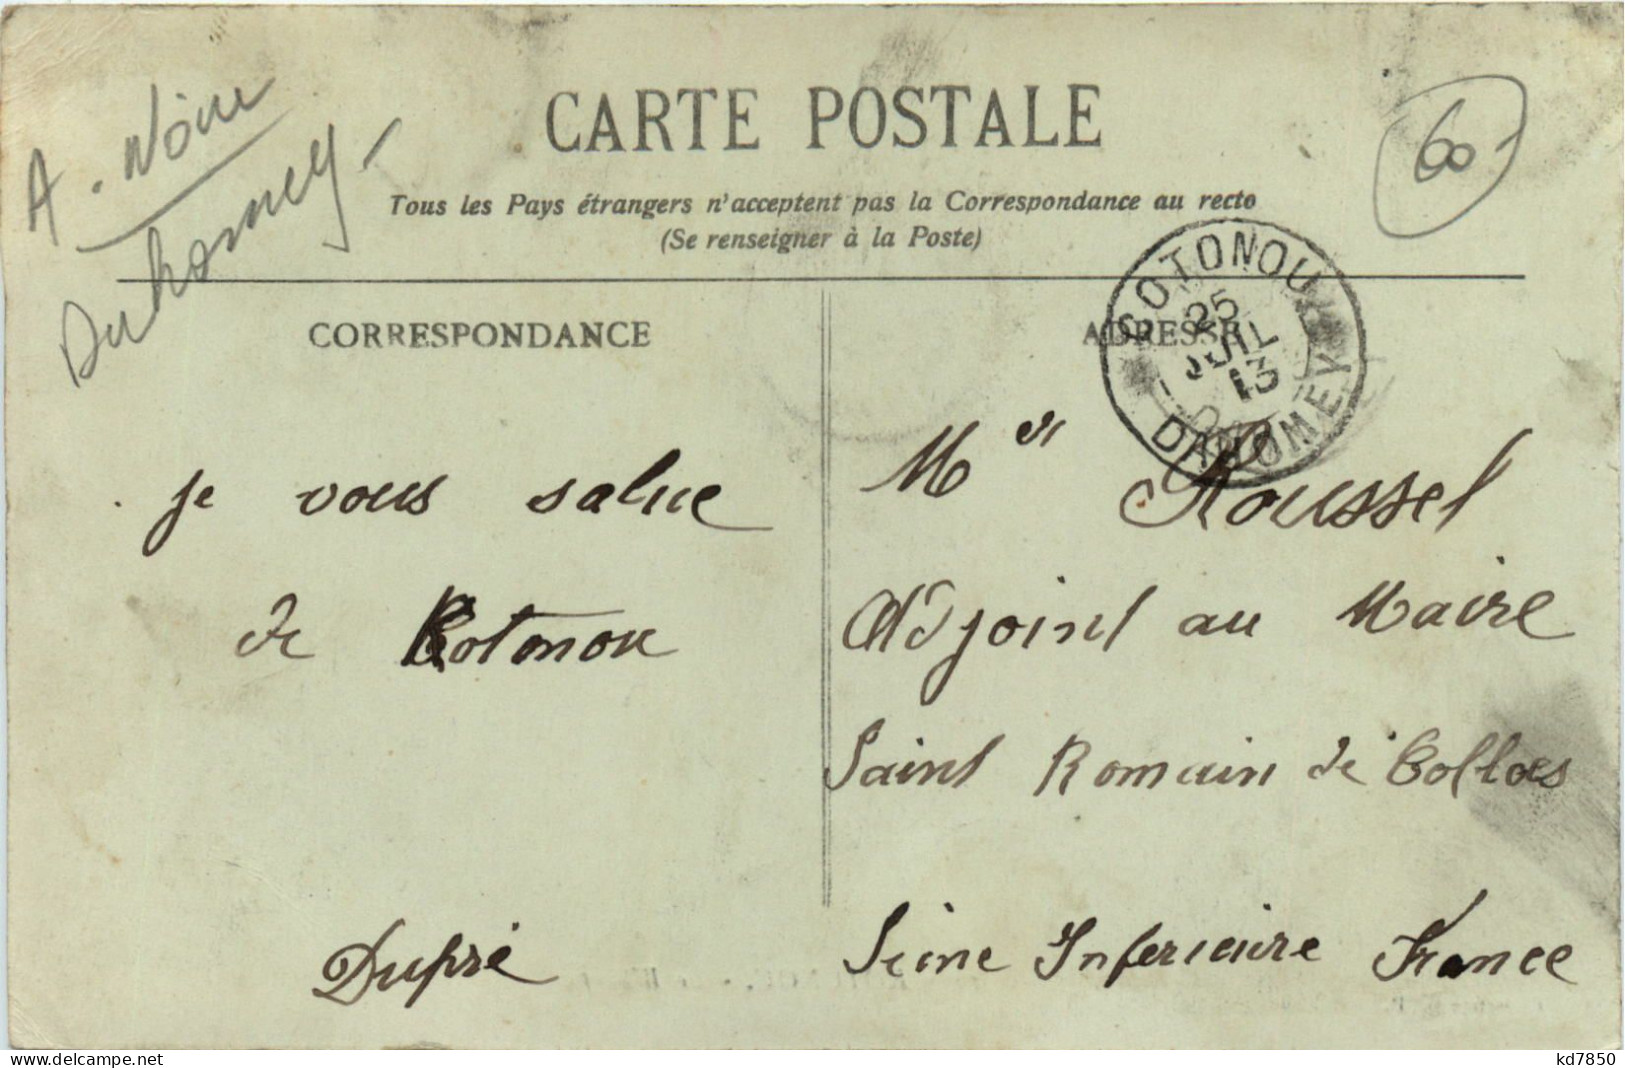 A. Noire
Dahomey -
CARTE POSTALE
60-
Tous les Pays étrangers n'acceptent pas la Correspondance au recto
(Se renseigner à la Poste)
COTONOU
25
JUIL
13
DAHOMEY
CORRESPONDANCE
je vous salue
de Cotonou
Dupré
ADRESSE
Mr Roussel
Adjoint au Maire
Saint Romain de Colbos
Seine Inferieure France
delcampe.net
kd7850